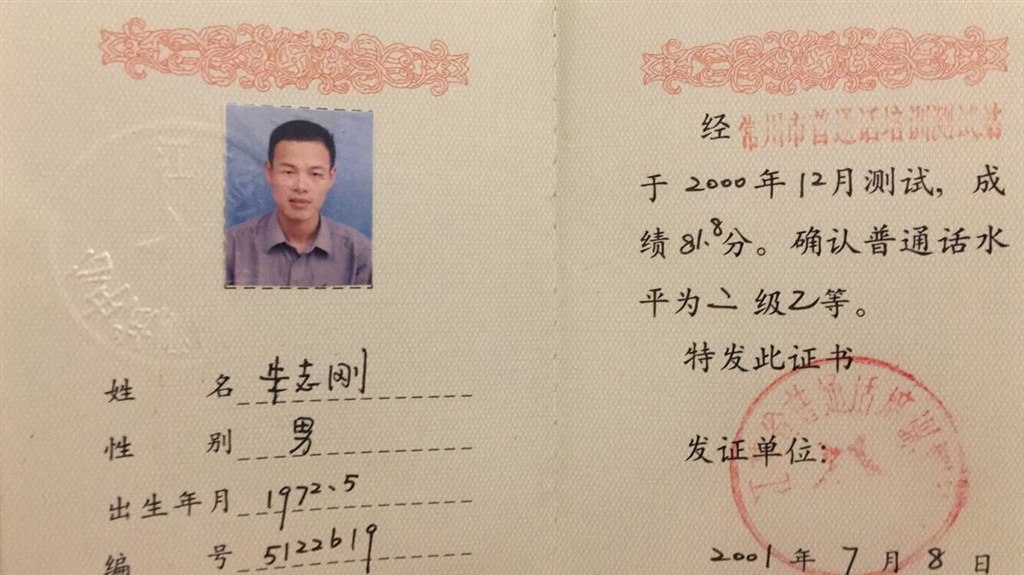 姓 名 牟志刚
性 别 男
出生年月 1972.5
编 号 5122619
经 常州市普通话培训测试站
于 2000 年 12 月测试，成
绩 81.8 分。确认普通话水
平为 二 级 乙 等。
特发此证书
发证单位：
2001 年 7 月 8 日